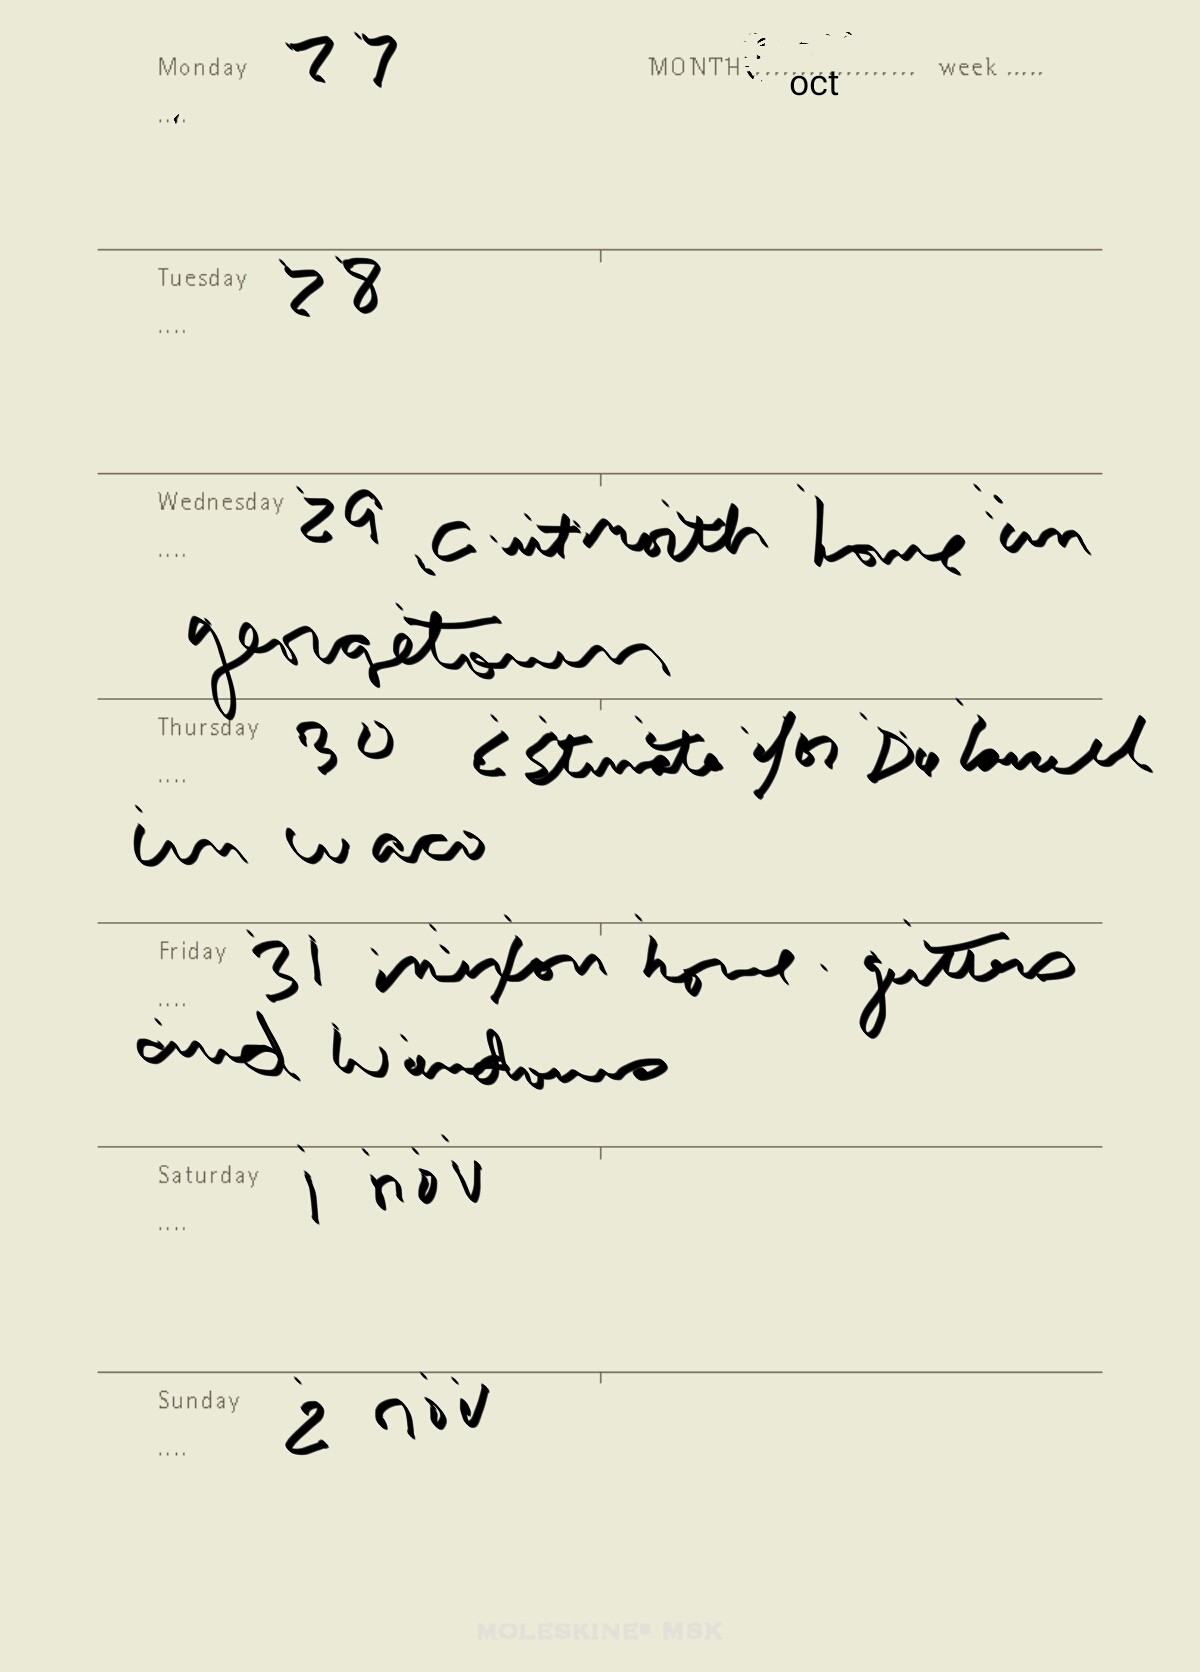 Monday 27 MONTH ................. week .....
oct
....
Tuesday 28
....
Wednesday 29 home in
....
georgetown
Thursday 30 Estimate for
....
in waco
Friday 31 nixon home. gutters
....
and windows
Saturday 1 nov
....
Sunday 2 nov
....
MOLESKINE® MSK